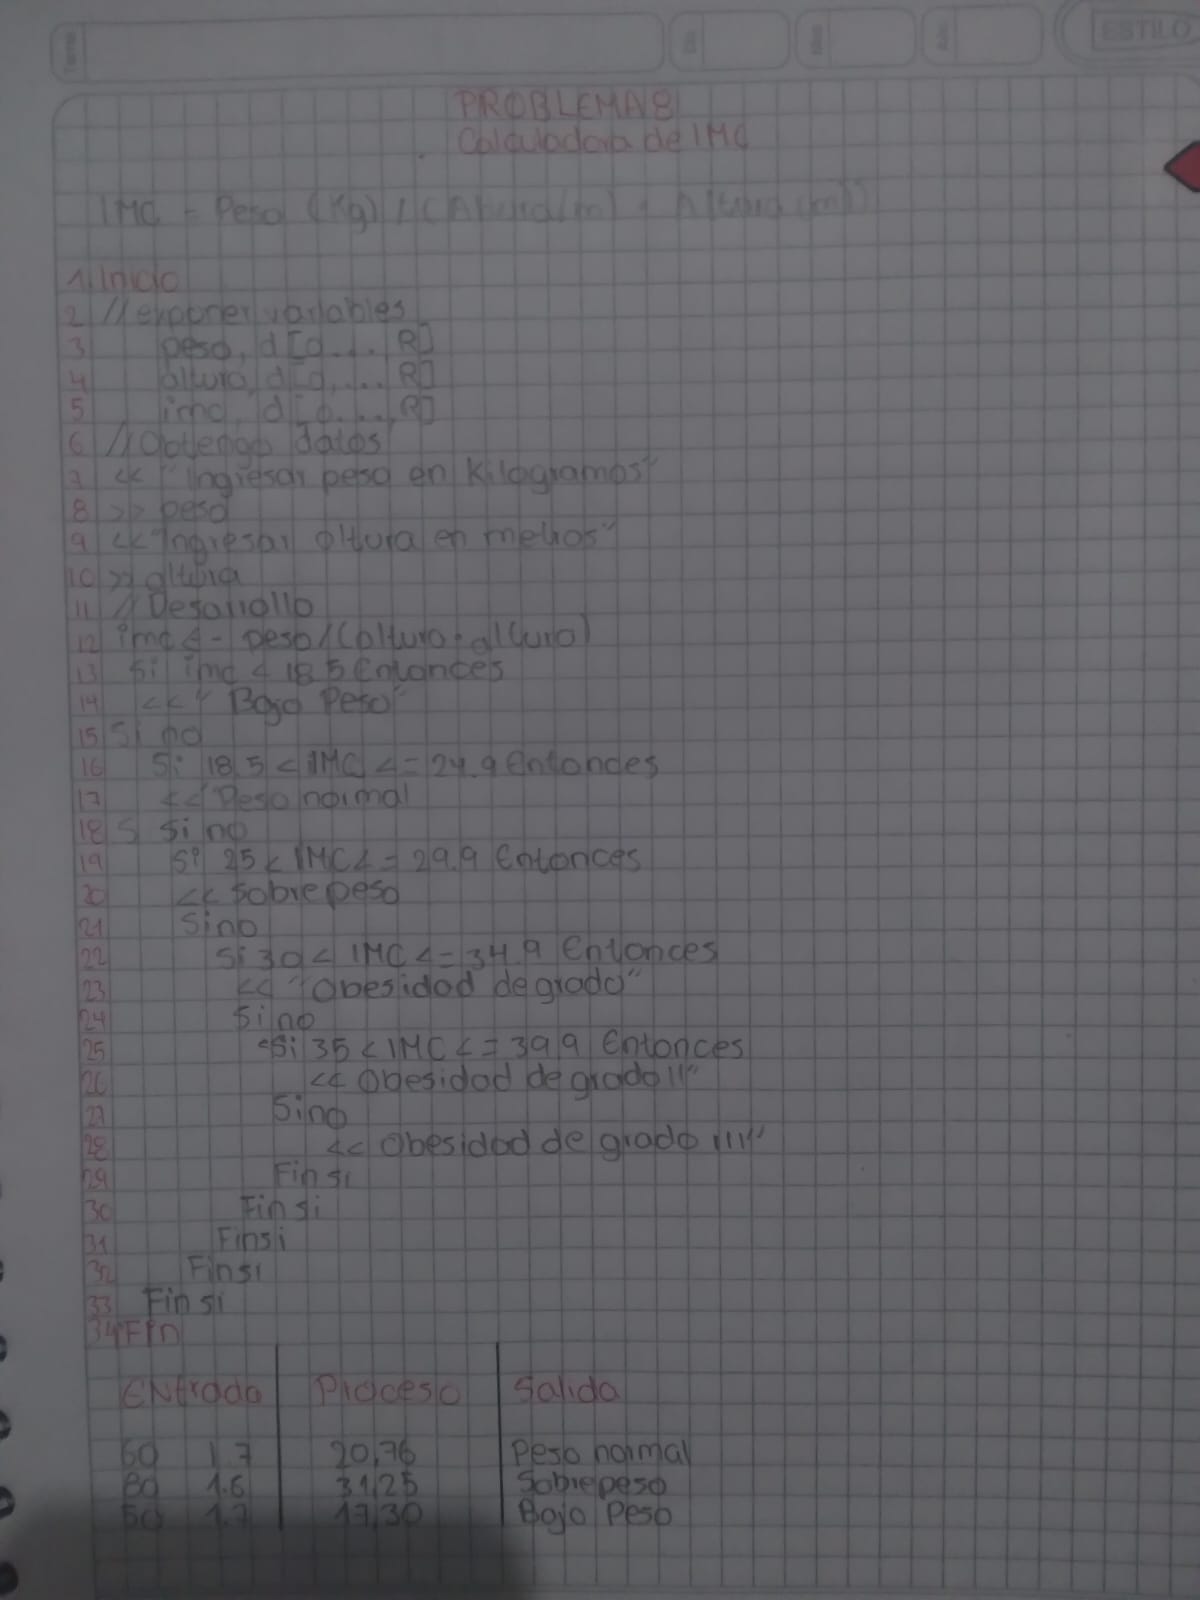 ESTILO
PROBLEMA 8
Calculadora de IMC
IMC = Peso (Kg) / (Altura(m) * Altura (m))
1. Inicio
2 // exponer variables
3 peso, d [0.... R]
4 altura, d [0.... R]
5 imc, d [0...., R]
6 // Obtengo datos
7 << "Ingresar peso en Kilogramos"
8 >> peso
9 << "Ingresar altura en metros"
10 >> altura
11 // Desarrollo
12 imc <- peso/(altura * altura)
13 Si imc < 18.5 Entonces
14 << "Bajo Peso"
15 Si no
16 Si 18.5 < IMC <= 24.9 Entonces
17 << "Peso normal
18 S Si no
19 Si 25 < IMC <= 29.9 Entonces
20 << Sobrepeso
21 Sino
22 Si 30 < IMC <= 34.9 Entonces
23 << "Obesidad de grado"
24 Si no
25 Si 35 < IMC <= 39.9 Entonces
26 << Obesidad de grado II"
27 Sino
28 << Obesidad de grado III"
29 Fin si
30 Fin si
31 Finsi
32 Finsi
33 Fin si
34 Fin
Entrada Proceso Salida
60 1.7 20,76 Peso normal
80 1.6 31,25 Sobrepeso
50 1.7 17,30 Bajo Peso